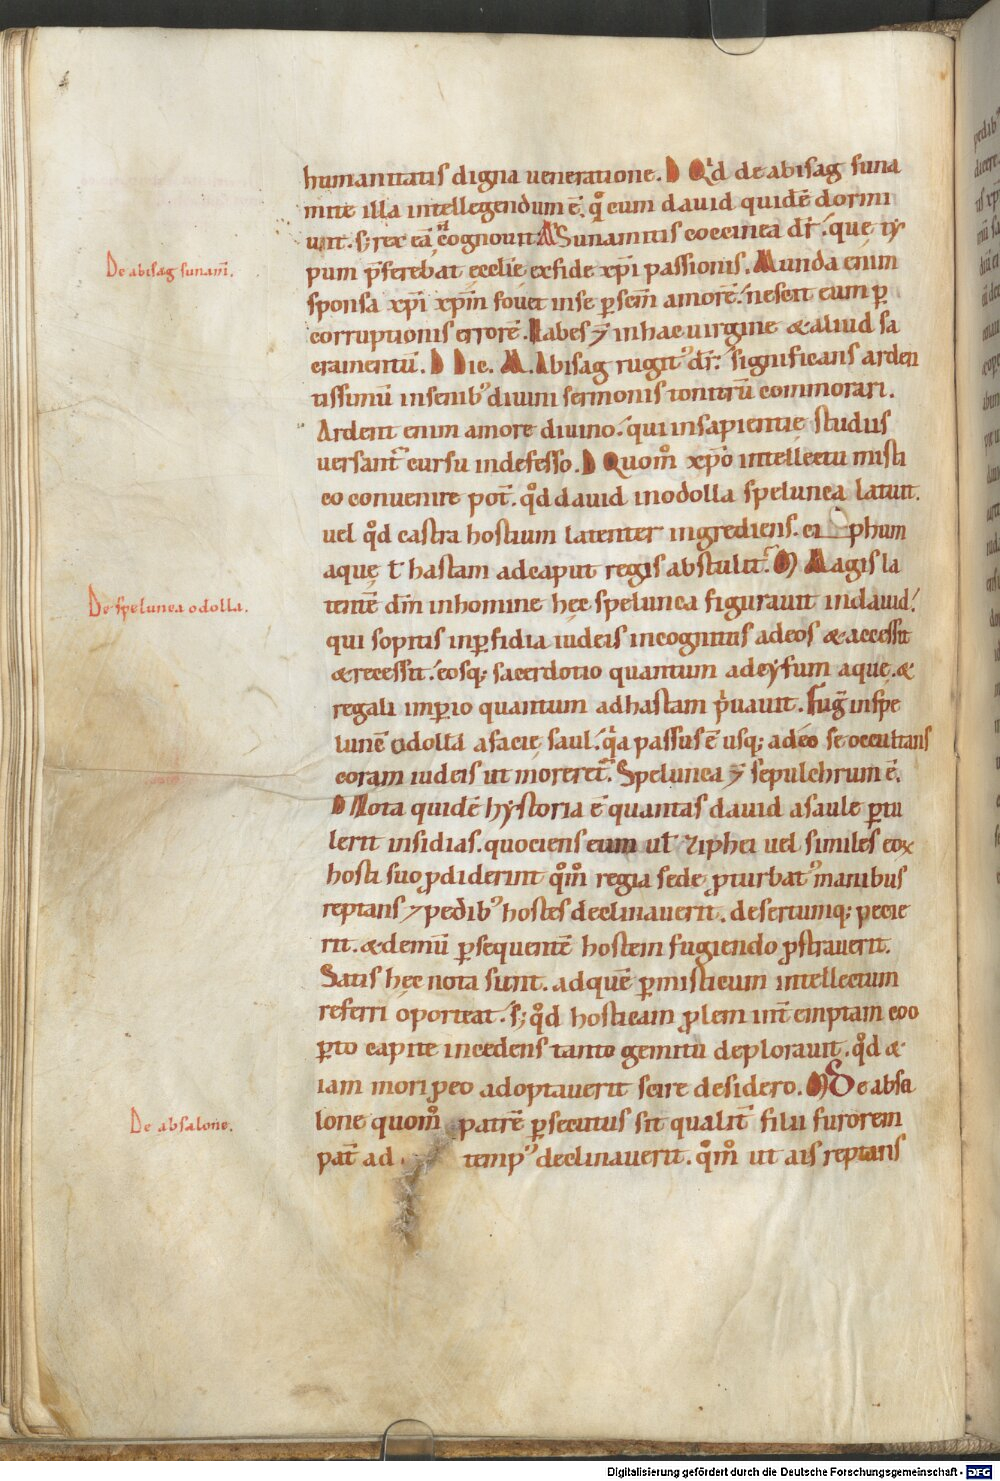 humanitatis digna ueneratione. D Qͥd de abisag suna
mite illa intellegendum ē. qͦ cum dauid quidē dormi
uit. s; rex eā ñ cognouit. M Sunamitis coccinea dr̄. que ty
pum p̄ferebat ęcclię ex fide xp̄i passionis. Munda enim
sponsa xp̄i xp̄m fouet in se ꝑ sem̄ amorē. nescit eum ꝑ
De abisag sunami.
corruptionis errorē. Habes ⁊ in hac uirgine & aliud sa
cramentū. D Dic. M. Abisag rugitꝰ dr̄. significans arden
tissimū in sensibꝰ diuini sermonis tonitrū commorari.
Ardent enim amore diuino. qui in sapientię studiis
uersant᷑ cursu indefesso. D Quom̊ xp̄o intellectu misti
co conuenire pot̄. qd̊ dauid in odolla spelunca latuit.
uel qd̊ castra hostium latenter ingrediens. ciphum
aquę ł hastam ad caput regis abstulit. M Magis la
tentē dm̄ in homine hęc spelunca figurauit in dauid.
De spelunca odolla.
qui sopitis in ꝑfidia iudeis incognitus ad eos & accessit
& recessit. eosq; sacerdotio quantum ad cyfum aquę. &
regali imꝑio quantum ad hastam p̍uauit. Fug̅ in spe
luncē odollā a facię saul. qͣa passus ē usq; adeo se occultans
coram iudeis ut moreret᷑. Spelunca ⁊ sepulchrum ē.
D Nota quidē hystoria ē quantas dauid a saule ꝑtu
lerit insidias. quociens eum ut ziphei uel similes eoꝝ
hosti suo ꝓdiderint qm̊ regia sede ꝓturbatꝰ manibus
reptans ⁊ pedibꝰ hostes declinauerit. desertumq; pecie
rit. & demū ꝑsequentē hostem fugiendo ꝓstrauerit.
Satis hęc nota sunt. ad quē ꝑ misticum intellectum
referri oporteat. s; qd̊ hosticam ꝓlem int̄emptam coo
ꝑto capite incedens tanto gemitu deplorauit. qd̊ &
iam mori ꝓ eo adoptauerit scire desidero. M De absa
lone quom̊ patrē ꝑsecutus sit qualit̄ filii furorem
De absalone.
pat̄ ad tempꝰ declinauerit. qm̊ ut ais reptans
Digitalisierung gefördert durch die Deutsche Forschungsgemeinschaft - DFG